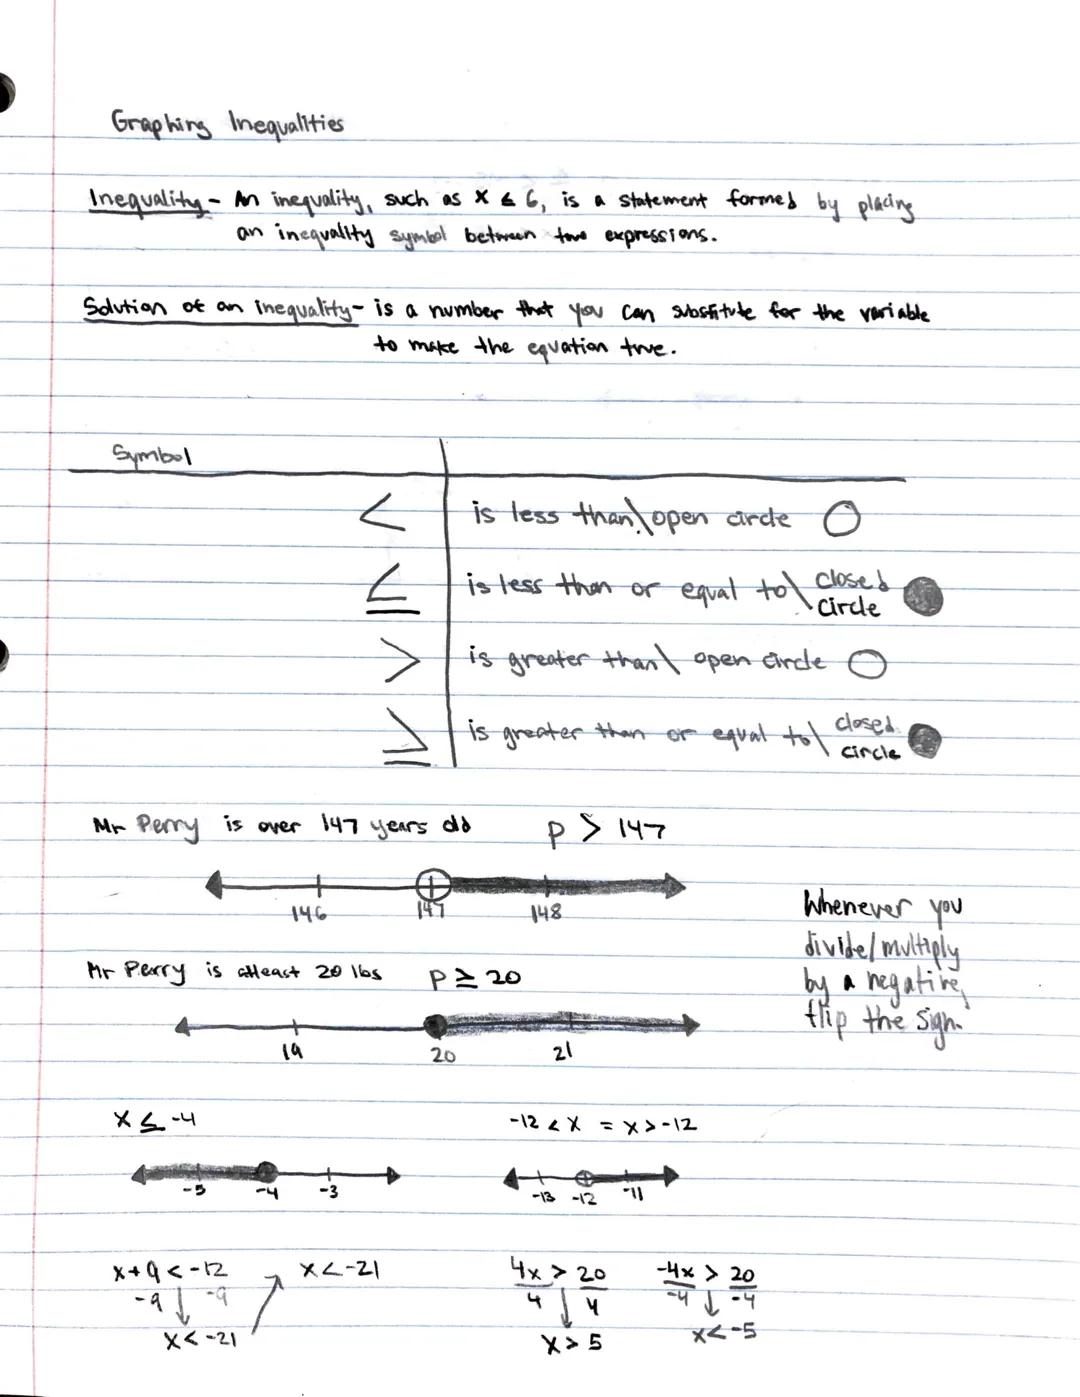 Graphing Inequalities
Inequality - An inequality, such as x ≤ 6, is a statement formed by placing
an inequality symbol between two expressions.
Solution of an inequality - is a number that you can substitute for the variable
to make the equation true.
Symbol
< is less than\open circle
≤ is less than or equal to\ closed circle
> is greater than\ open circle
≥ is greater than or equal to\ closed circle
Mr Perry is over 147 years old p > 147
146 147 148
Whenever you
divide/multiply
by a negative,
flip the sign.
Mr Perry is atleast 20 lbs p ≥ 20
19 20 21
x ≤ -4
-5 -4 -3
-12 < x = x > -12
-13 -12 -11
x + 9 < -12
-9 -9
x < -21
x < -21
4x > 20
4 4
x > 5
-4x > 20
-4 -4
x < -5